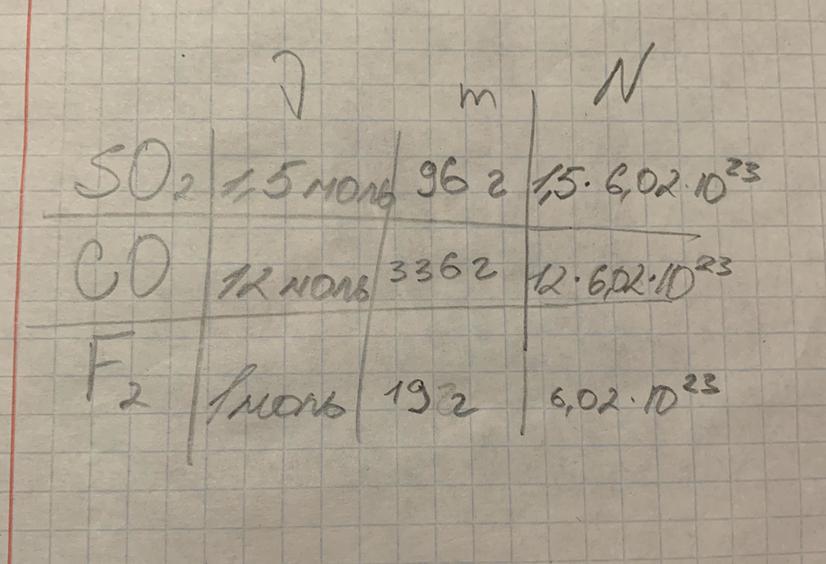 ν m N
SO₂ 1,5 моль 96 г 1,5·6,02·10²³
CO 12 моль 336 г 12·6,02·10²³
F₂ 1 моль 19 г 6,02·10²³